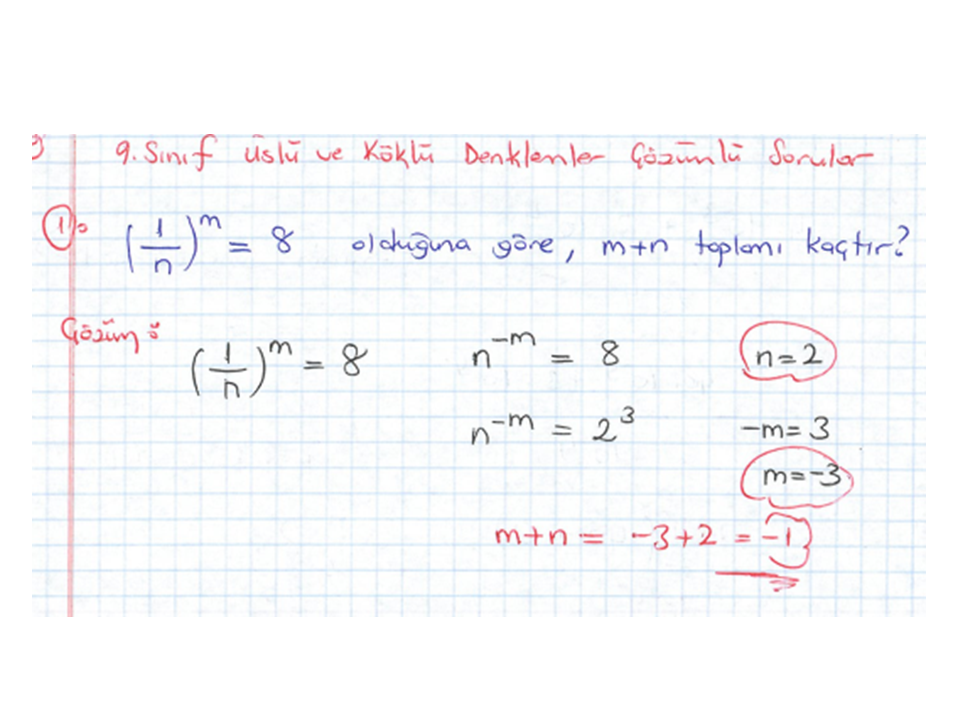 9. Sınıf Üslü ve Köklü Denklemler Çözümlü Sorular
1) (1/n)^m = 8 olduğuna göre, m+n toplamı kaçtır?
Çözüm: (1/n)^m = 8 n^-m = 8 n=2
n^-m = 2^3 -m=3
m=-3
m+n = -3+2 = -1